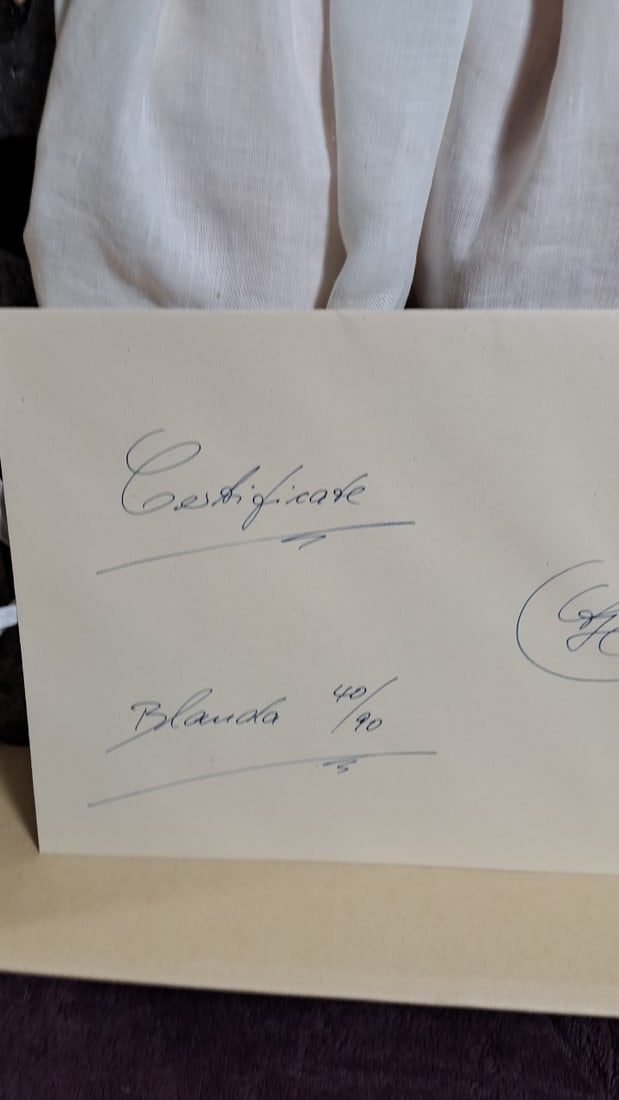 Certificate
Blanda 40/90